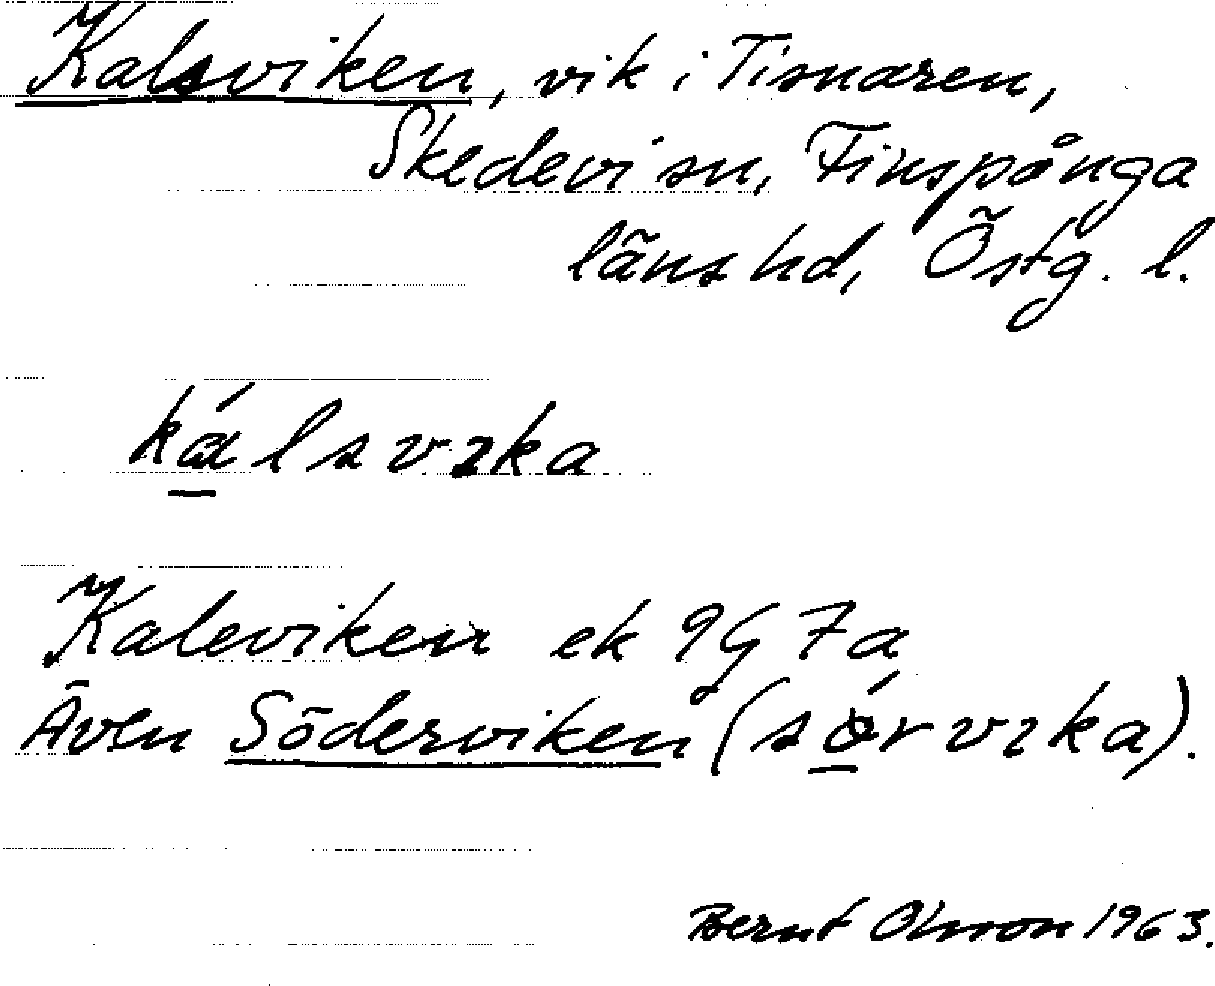 Kalsviken, vik i Tisnaren,
Skedevi sn, Finspånga
läns hd, Östg. l.
kálsvıka
Kaleviken ek 9G 7a
Även Söderviken (sórvıka).
Bernt Olsson 1963.